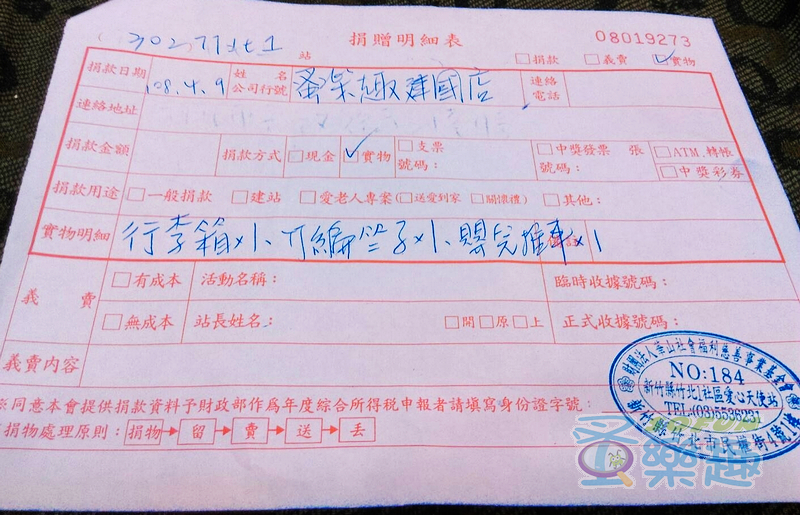 30277竹北1 站 捐贈明細表 08019273
□捐款 □義賣 ☑實物
捐款日期 108.4.9 姓名 公司行號 蚤樂趣建國店 連絡電話
連絡地址
捐款金額 捐款方式 □現金 ☑實物 □支票號碼: □中獎發票 張 號碼: □ATM.轉帳 □中獎彩券
捐款用途 □一般捐款 □建站 □愛老人專案(□送愛到家 □關懷禮) □其他:
實物明細 行李箱x1、竹編竺子x1、嬰兒推車x1
義賣 □有成本 活動名稱: 臨時收據號碼:
□無成本 站長姓名: □開□原□上 正式收據號碼:
義賣內容
※同意本會提供捐款資料予財政部作為年度綜合所得稅申報者請填寫身份證字號:
捐物處理原則: 捐物→留→賣→送→丟
財團法人華山社會福利慈善事業基金會
NO:184
新竹縣竹北1社區愛心天使站
TEL:(03)5536231
新竹縣竹北市民權街4號1樓
蚤樂趣